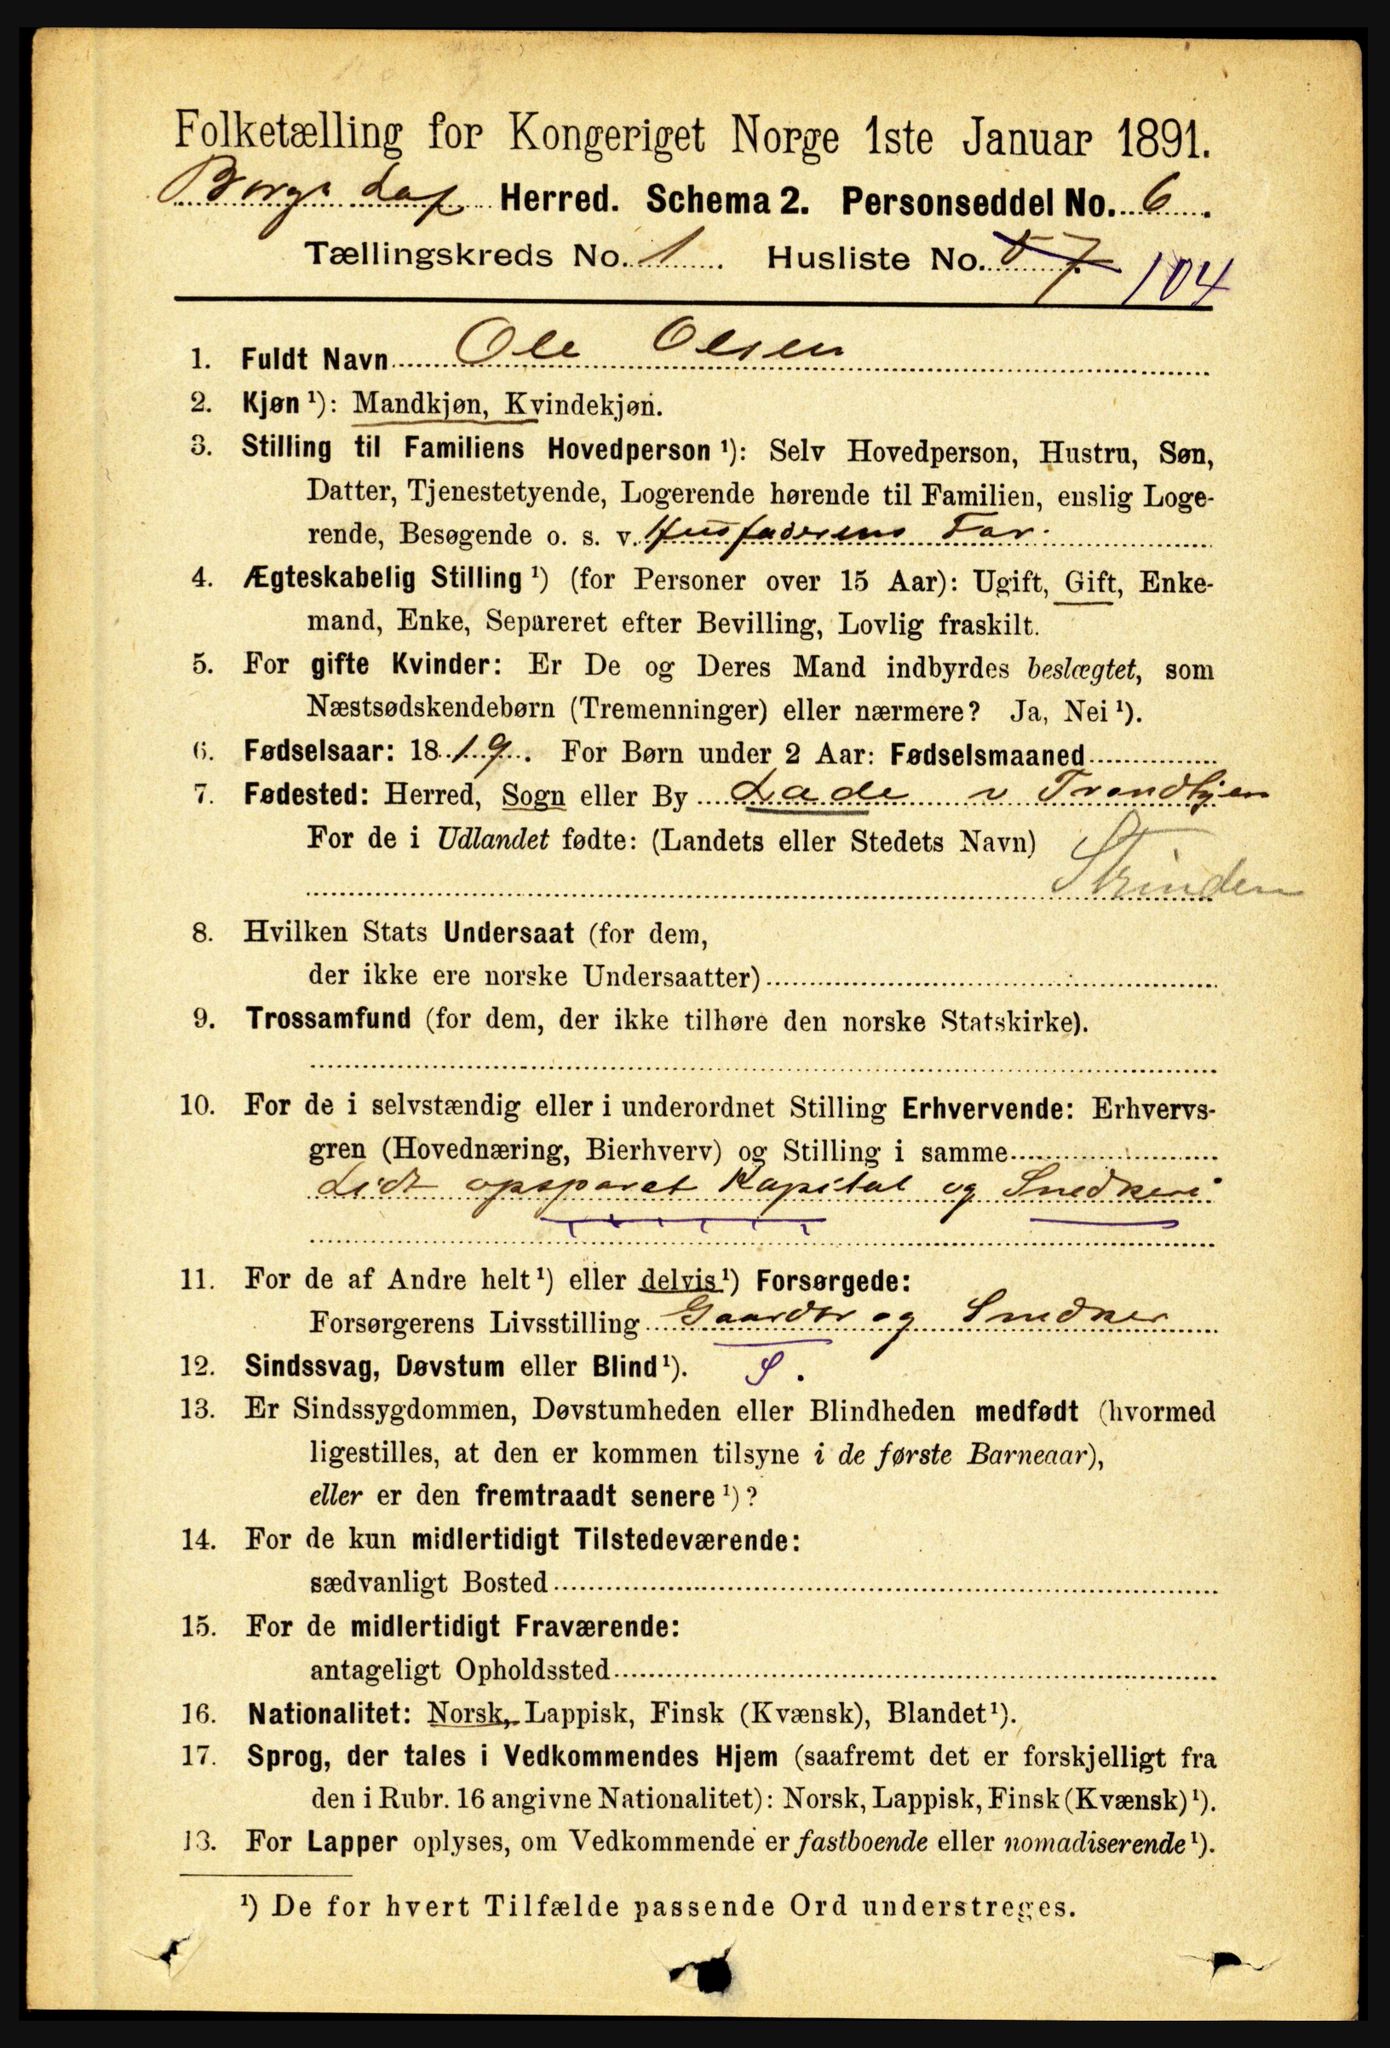 Folketælling for Kongeriget Norge 1ste Januar 1891.
Borge Lof Herred. Schema 2. Personseddel No. 6.
Tællingskreds No. 1 Husliste No. 57 104
1. Fuldt Navn Ole Olsen
2. Kjøn ¹): Mandkjøn, Kvindekjøn.
3. Stilling til Familiens Hovedperson ¹): Selv Hovedperson, Hustru, Søn,
Datter, Tjenestetyende, Logerende hørende til Familien, enslig Loge-
rende, Besøgende o. s. v. Husfaderens Far.
4. Ægteskabelig Stilling ¹) (for Personer over 15 Aar): Ugift, Gift, Enke-
mand, Enke, Separeret efter Bevilling, Lovlig fraskilt.
5. For gifte Kvinder: Er De og Deres Mand indbyrdes beslægtet, som
Næstsødskendebørn (Tremenninger) eller nærmere? Ja, Nei ¹).
6. Fødselsaar: 1819. For Børn under 2 Aar: Fødselsmaaned
7. Fødested: Herred, Sogn eller By Lade v Trondhjem
For de i Udlandet fødte: (Landets eller Stedets Navn)
Strinden
8. Hvilken Stats Undersaat (for dem,
der ikke ere norske Undersaatter)
9. Trossamfund (for dem, der ikke tilhøre den norske Statskirke).
10. For de i selvstændig eller i underordnet Stilling Erhvervende: Erhvervs-
gren (Hovednæring, Bierhverv) og Stilling i samme
Lidt opsparet Kapital og Snedkeri
11. For de af Andre helt ¹) eller delvis ¹) Forsørgede:
Forsørgerens Livsstilling Gaardbr og Snedker
12. Sindssvag, Døvstum eller Blind ¹). S.
13. Er Sindssygdommen, Døvstumheden eller Blindheden medfødt (hvormed
ligestilles, at den er kommen tilsyne i de første Barneaar),
eller er den fremtraadt senere ¹)?
14. For de kun midlertidigt Tilstedeværende:
sædvanligt Bosted
15. For de midlertidigt Fraværende:
antageligt Opholdssted
16. Nationalitet: Norsk, Lappisk, Finsk (Kvænsk), Blandet ¹).
17. Sprog, der tales i Vedkommendes Hjem (saafremt det er forskjelligt fra
den i Rubr. 16 angivne Nationalitet): Norsk, Lappisk, Finsk (Kvænsk) ¹).
13. For Lapper oplyses, om Vedkommende er fastboende eller nomadiserende ¹).
¹) De for hvert Tilfælde passende Ord understreges.